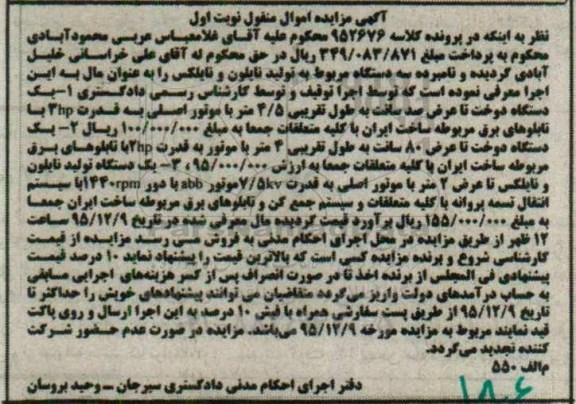 آگهی مزایده اموال منقول نوبت اول
نظر به اینکه در پرونده کلاسه ۹۵۲۶۷۶ محکوم علیه آقای غلامعباس عربی محمودآبادی
محکوم به پرداخت مبلغ ۳۴۹/۰۸۳/۸۷۱ ریال در حق محکوم له آقای علی خراسانی خلیل
آبادی گردیده و نامبرده سه دستگاه مربوط به تولید نایلون و نایلکس را به عنوان مال به این
اجرا معرفی نموده است که توسط اجرا توقیف و توسط کارشناس رسمی دادگستری ۱-یک
دستگاه دوخت تا عرض صد سانت به طول تقریبی ۴/۵ متر با موتور اصلی به قدرت 3hp با
تابلوهای برق مربوطه ساخت ایران با کلیه متعلقات جمعا به مبلغ ۱۰۰/۰۰۰/۰۰۰ ریال ۲- یک
دستگاه دوخت تا عرض ۸۰ سانت به طول تقریبی ۴ متر با موتور به قدرت 2hp با تابلوهای برق
مربوطه ساخت ایران با کلیه متعلقات جمعا به ارزش ۹۵/۰۰۰/۰۰۰، ۳- یک دستگاه تولید نایلون
و نایلکس تا عرض ۲ متر با موتور اصلی به قدرت ۷/۵kv موتور abb با دور ۱۴۴۰rpm با سیستم
انتقال تسمه پروانه با کلیه متعلقات و سیستم جمع کن و تابلوهای برق مربوطه ساخت ایران جمعا
به مبلغ ۱۵۵/۰۰۰/۰۰۰ ریال برآورد قیمت گردیده حال معرفی شده در تاریخ ۹۵/۱۲/۹ ساعت
۱۲ ظهر از طریق مزایده در محل اجرای احکام مدنی به فروش می رسد مزایده از قیمت
کارشناسی شروع و برنده مزایده کسی است که بالاترین قیمت را پیشنهاد نماید ۱۰ درصد قیمت
پیشنهادی فی المجلس از برنده اخذ تا در صورت انصراف پس از کسر هزینه‌های اجرایی مابقی
به حساب درآمدهای دولت واریز می‌گردد متقاضیان می توانند پیشنهادهای خویش را حداکثر تا
تاریخ ۹۵/۱۲/۹ از طریق پست سفارشی همراه با فیش ۱۰ درصد به این اجرا ارسال و روی پاکت
قید نمایند مربوط به مزایده مورخه ۹۵/۱۲/۹ می‌باشد. مزایده در صورت عدم حضور شرکت
کننده تجدید می‌گردد.
م/الف ۵۵۰
دفتر اجرای احکام مدنی دادگستری سیرجان – وحید بروسان
۱۸۰۶